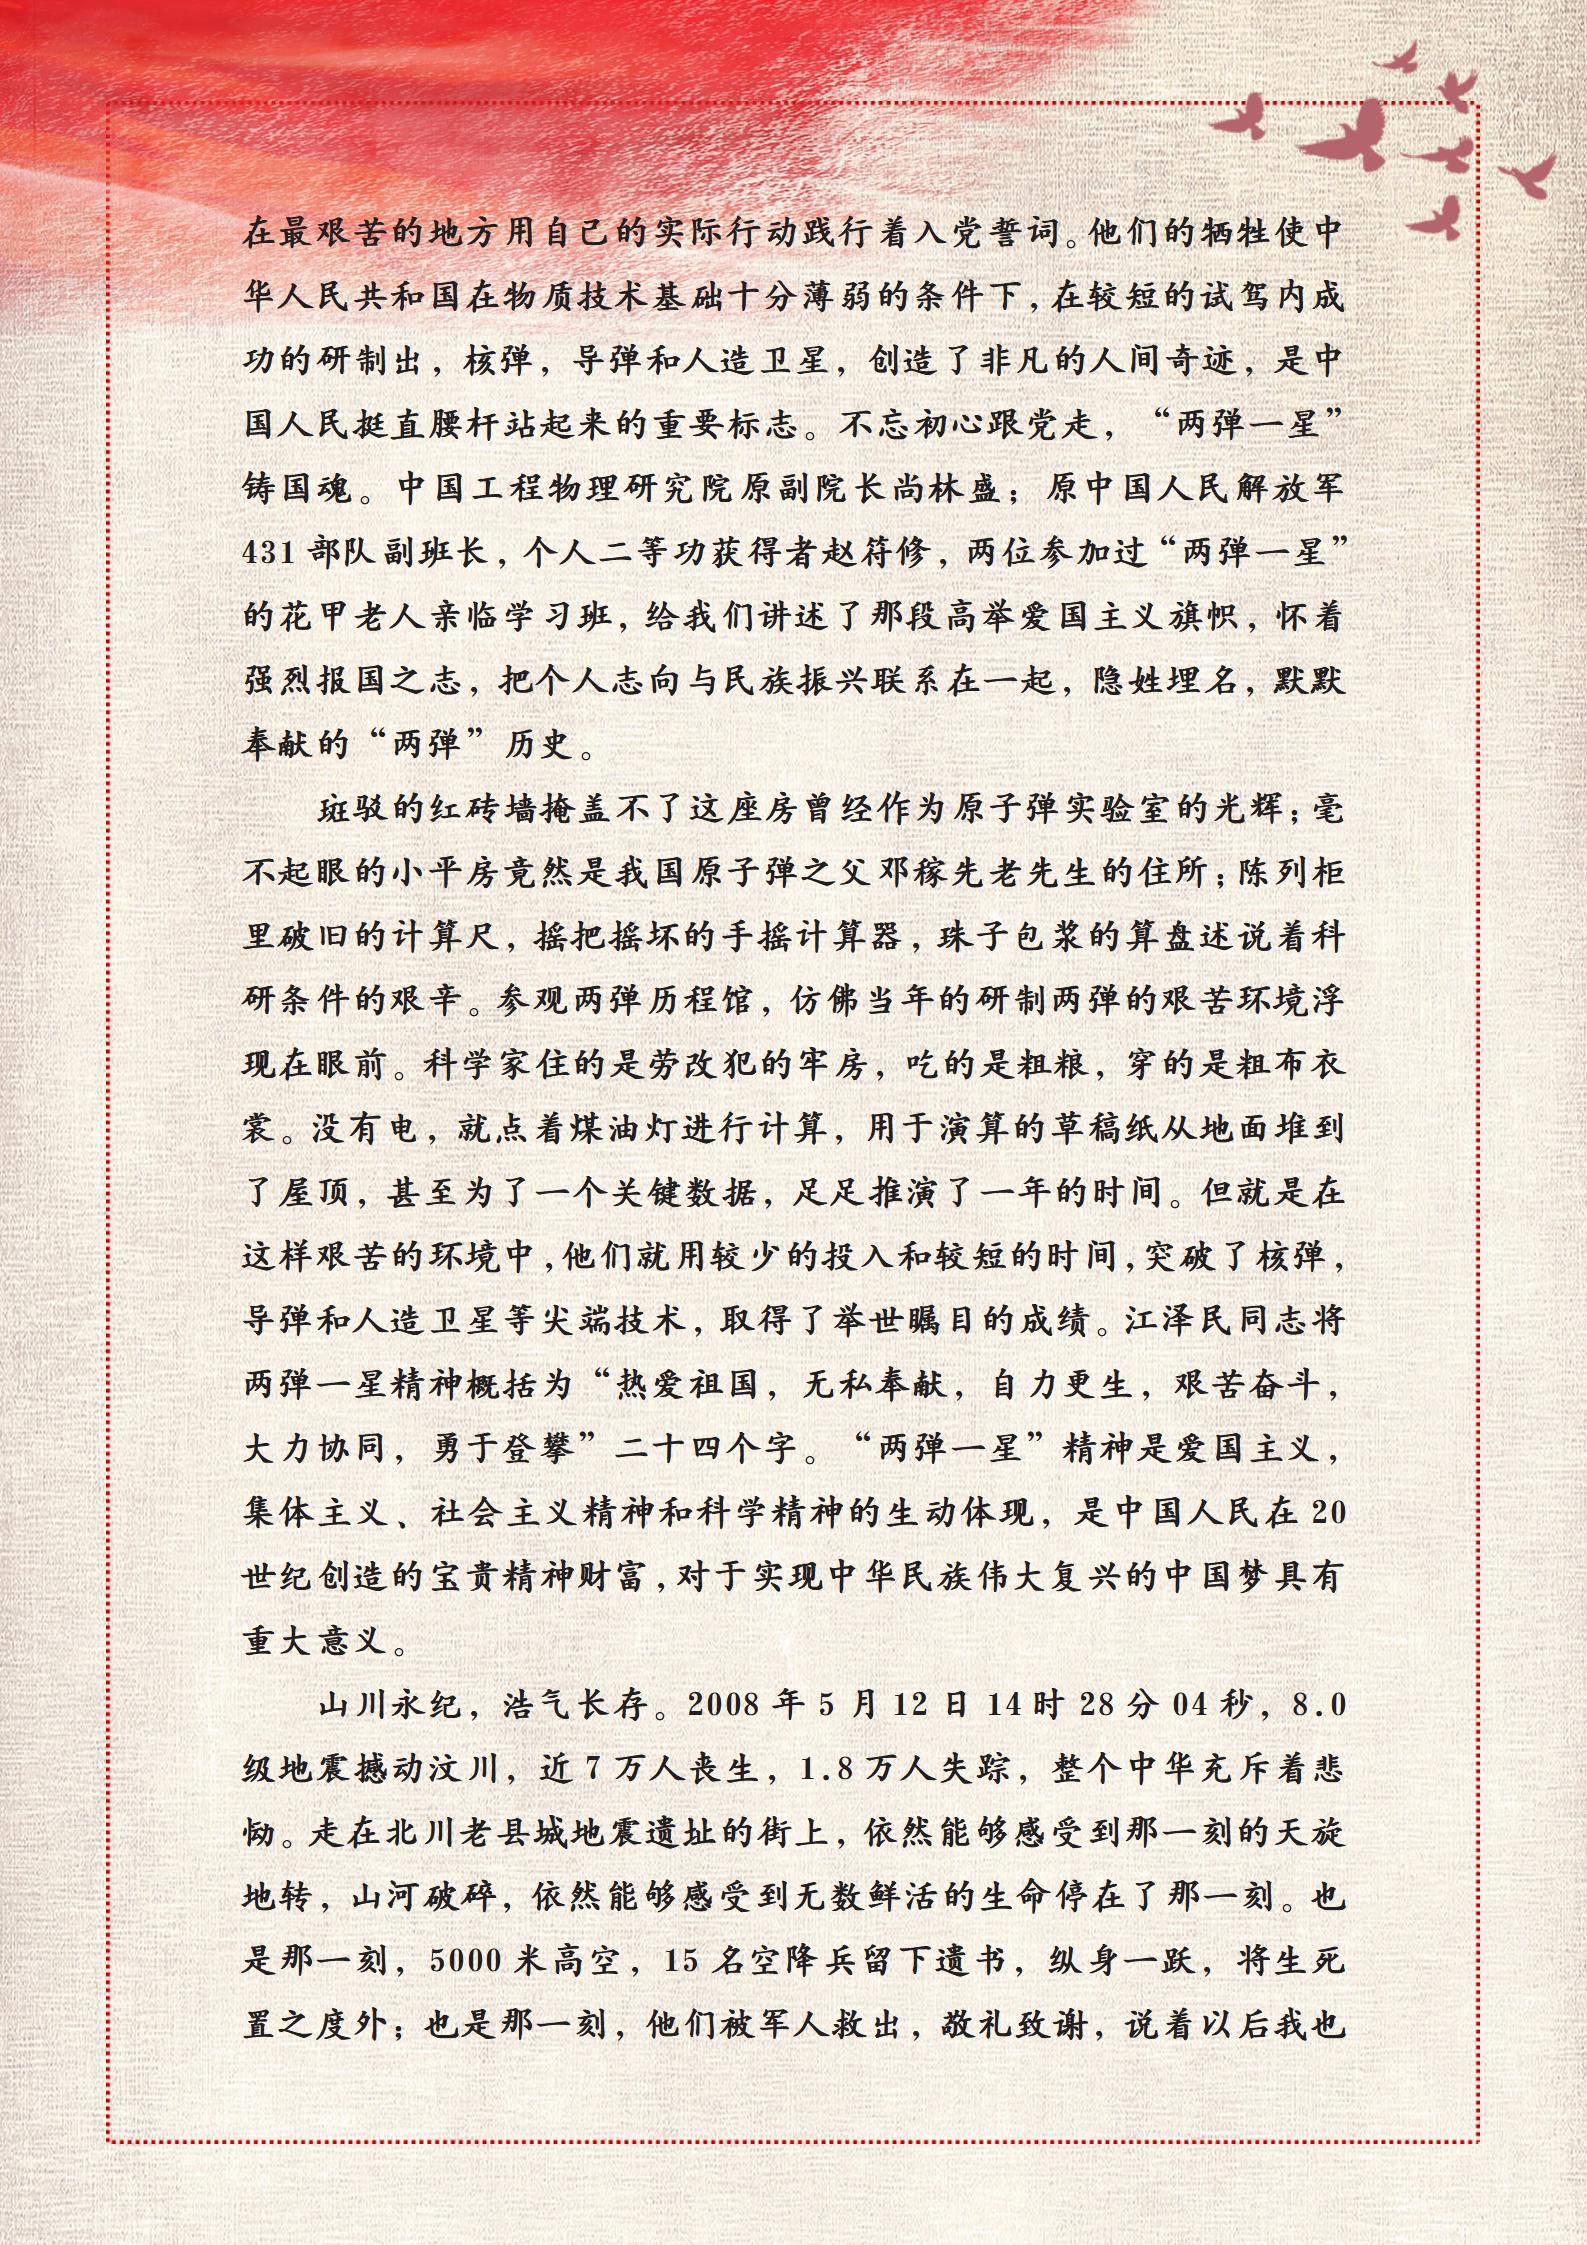 在最艰苦的地方用自己的实际行动践行着入党誓词。他们的牺牲使中
华人民共和国在物质技术基础十分薄弱的条件下，在较短的试驾内成
功的研制出，核弹，导弹和人造卫星，创造了非凡的人间奇迹，是中
国人民挺直腰杆站起来的重要标志。不忘初心跟党走，“两弹一星”
铸国魂。中国工程物理研究院原副院长尚林盛；原中国人民解放军
431 部队副班长，个人二等功获得者赵符修，两位参加过“两弹一星”
的花甲老人亲临学习班，给我们讲述了那段高举爱国主义旗帜，怀着
强烈报国之志，把个人志向与民族振兴联系在一起，隐姓埋名，默默
奉献的“两弹”历史。
斑驳的红砖墙掩盖不了这座房曾经作为原子弹实验室的光辉；毫
不起眼的小平房竟然是我国原子弹之父邓稼先老先生的住所；陈列柜
里破旧的计算尺，摇把摇坏的手摇计算器，珠子包浆的算盘述说着科
研条件的艰辛。参观两弹历程馆，仿佛当年的研制两弹的艰苦环境浮
现在眼前。科学家住的是劳改犯的牢房，吃的是粗粮，穿的是粗布衣
裳。没有电，就点着煤油灯进行计算，用于演算的草稿纸从地面堆到
了屋顶，甚至为了一个关键数据，足足推演了一年的时间。但就是在
这样艰苦的环境中，他们就用较少的投入和较短的时间，突破了核弹，
导弹和人造卫星等尖端技术，取得了举世瞩目的成绩。江泽民同志将
两弹一星精神概括为“热爱祖国，无私奉献，自力更生，艰苦奋斗，
大力协同，勇于登攀”二十四个字。“两弹一星”精神是爱国主义，
集体主义、社会主义精神和科学精神的生动体现，是中国人民在 20
世纪创造的宝贵精神财富，对于实现中华民族伟大复兴的中国梦具有
重大意义。
山川永纪，浩气长存。2008 年 5 月 12 日 14 时 28 分 04 秒，8.0
级地震撼动汶川，近 7 万人丧生，1.8 万人失踪，整个中华充斥着悲
恸。走在北川老县城地震遗址的街上，依然能够感受到那一刻的天旋
地转，山河破碎，依然能够感受到无数鲜活的生命停在了那一刻。也
是那一刻，5000 米高空，15 名空降兵留下遗书，纵身一跃，将生死
置之度外；也是那一刻，他们被军人救出，敬礼致谢，说着以后我也